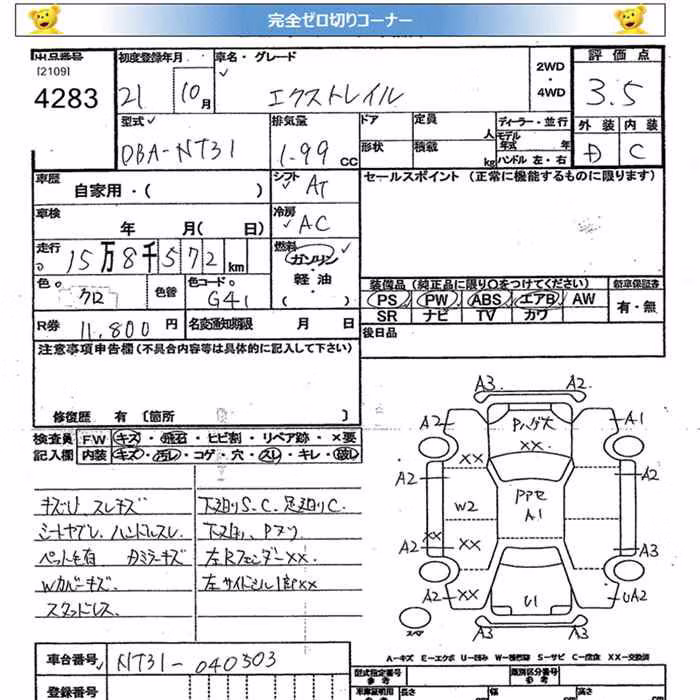 完全ゼロ切りコーナー
出品番号 初度登録年月 車名・グレード 2WD・4WD 評価点
[2109]
4283 21 10月 エクストレイル 3.5
型式 排気量 ドア 定員 人 ディーラー・並行 外装 内装
DBA-NT31 1.99 CC 形状 積載 kg モデル年式 年 ハンドル 左・右 D C
車歴 自家用・( ) シフト AT セールスポイント (正常に機能するものに限ります)
車検 年 月( 日) 冷房 AC
走行 15万8千572 km 燃料 ガソリン・軽油・( )
色 クロ 色替 色コード G41 装備品 (純正品に限り○をつけてください) 新車保証書
PS PW ABS エアB AW 有・無
SR ナビ TV カワ
R券 11,800 円 名変通知期限 月 日 後日品
注意事項申告欄 (不具合内容等は具体的に記入して下さい)
修復歴 有 [箇所 ]
検査員記入欄 FW キズ・飛石・ヒビ割・リペア跡・×要
内装 キズ・汚レ・コゲ・穴・スレ・キレ・破レ
キズU、スレキズ 下廻りS.C.足廻りC.
シートヤブレ、ハンドルスレ、 下廻り、Pヌリ
ペット毛有 左RフェンダーXX.
Wカバーキズ. 左サイドシル1部XX
スタッドレス.
A3 A2
A2 A1
XX XX
A2 A2
W2 A1
XX
A2 XX A3
A2 XX U1 UA2
スペア A3 A3
A-キズ E-エクボ U-凹み W-補修跡 S-サビ C-腐食 XX-交換済
車台番号 NT31-040503
登録番号
型式指定番号 参考 類別区分番号 参考
車庫証明用 参考 長さ cm 幅 cm 高さ cm